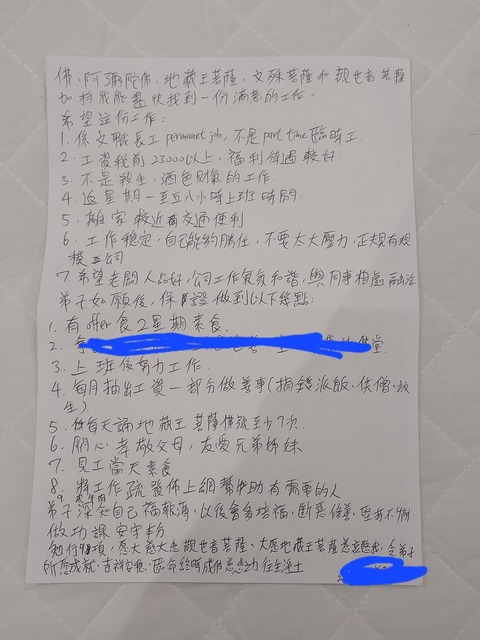 佛、阿弥陀佛、地藏王菩薩、文殊菩薩和觀世音菩薩
加持我能盡快找到一份滿意的工作。
希望這份工作：
1. 係文職長工 permanet job, 不是 part time 臨時工.
2. 工資稅前 23000以上, 福利待遇較好.
3. 不是殺生, 酒色財氣的工作.
4. 返星期一至五八小時上班時間.
5. 離家較近交通便利
6. 工作穩定, 自己能夠勝任, 不要太大壓力, 正規有規
模公司
7. 希望老闆人品好, 公司工作氣氛和諧, 與同事相處融洽
弟子如願後, 保證做到以下幾點:
1. 有 offer 食2星期素食.
2.
3. 上班後努力工作.
4. 每月抽出工資一部分做善事(捐錢派飯、供僧、放
生).
5. 每天誦地藏王菩薩佛號至少7次.
6. 開心孝敬父母, 友愛兄弟姊妹
7. 見工當天素食
8. 將工作疏發佈上網幫助有需要的人
9. 戒牛肉
弟子深知自己福報薄, 以後會多培福, 斷惡修善,
做功課安守本分
大慈大悲觀世音菩薩、大愿地藏王菩薩 令弟子
所愿成就, 吉祥安穩, 命終時 往生淨土